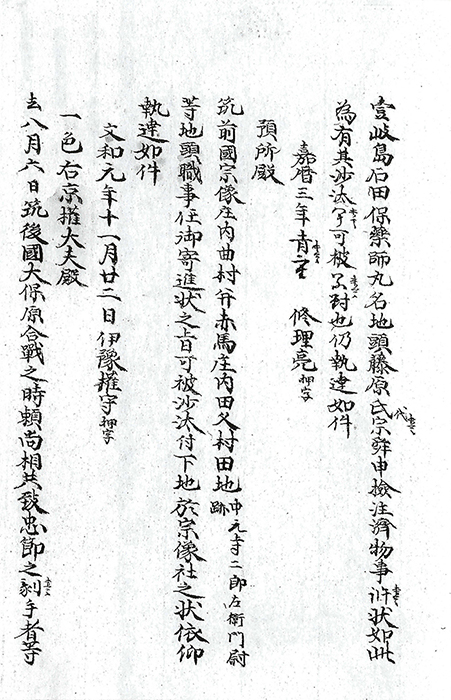 壹岐島石田保藥師丸名地頭藤原氏代宗舜申檢注濟物事訴状如此
為有其沙汰可被也仍執達如件
嘉暦三年 修理亮押字
預所殿
筑前國宗像庄内曲村并赤馬庄内田久村田地中元寺二郎左衛門尉跡
等地頭職事任御寄進状之旨可被沙汰付下地於宗像社之状依仰
執達如件
文和元年十一月廿二日伊豫權守押字
一色右京權大夫殿
去八月六日筑後國大保原合戰之時頼尚相共致忠節之刻手者等